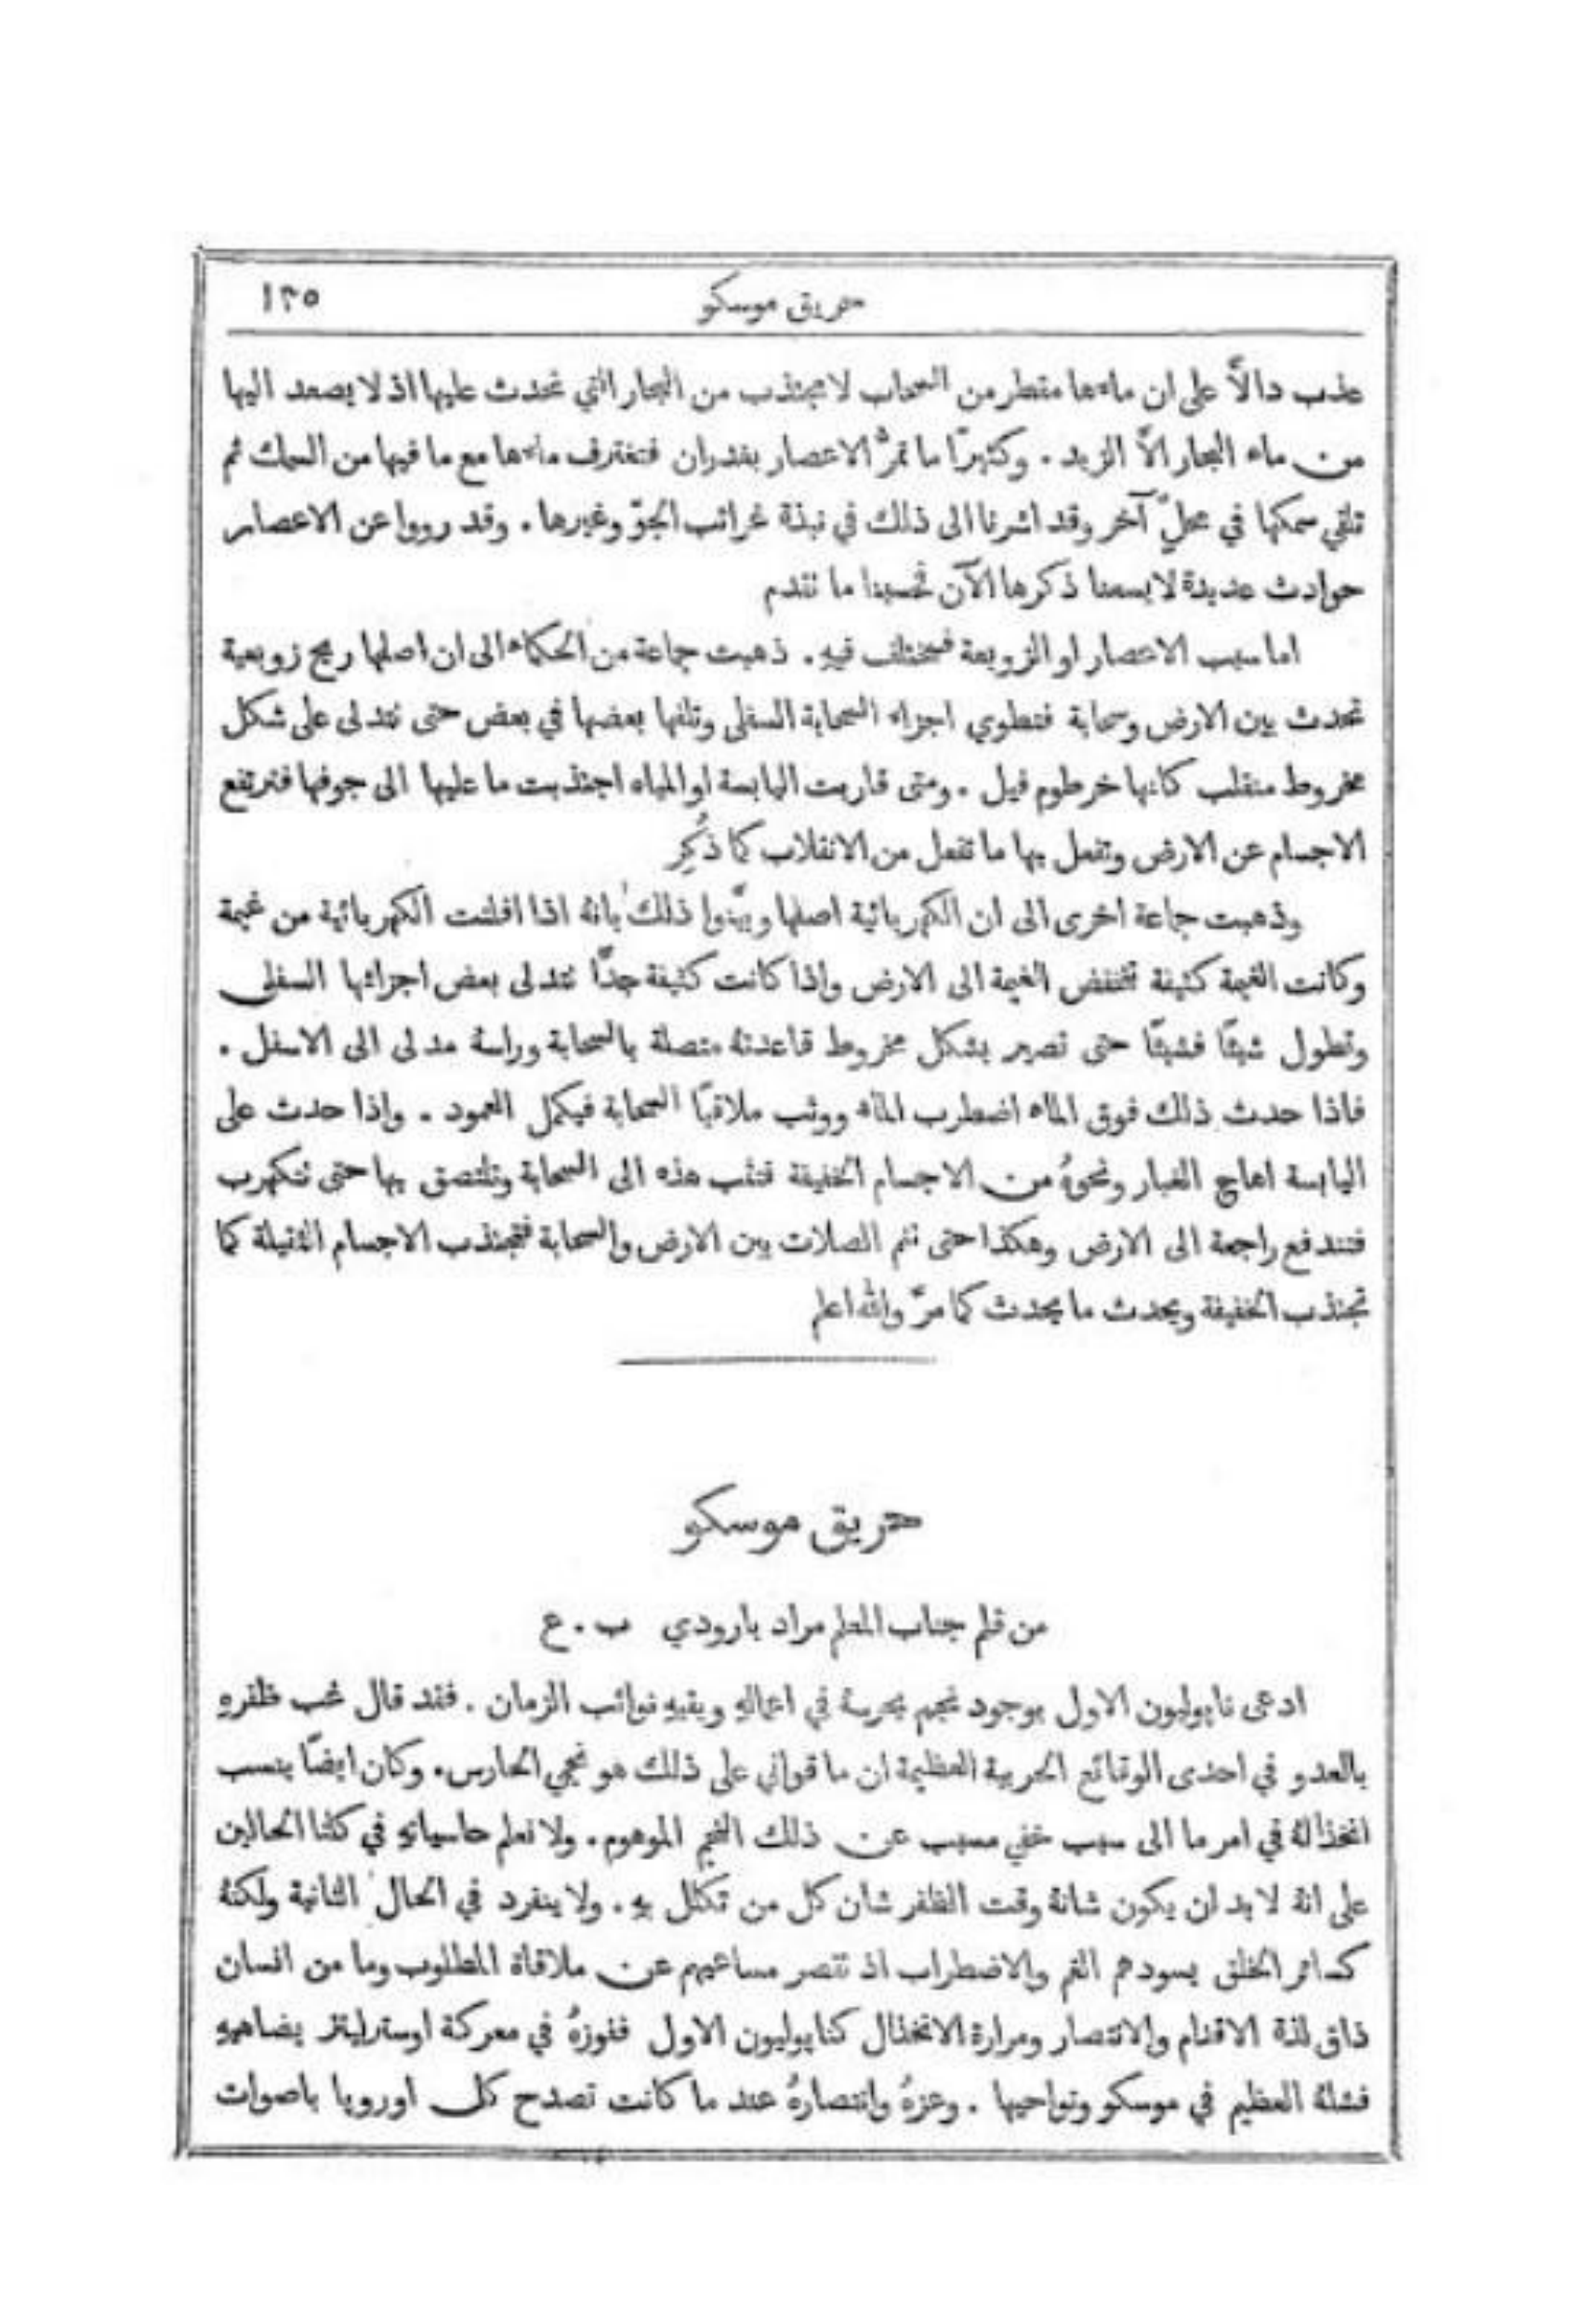 حريق موسكو
١٣٥
عذب دالاً على ان ماءها متطر من السحاب لا مجتذب من البحار التي تحدث عليها اذ لا يصعد اليها
من ماء البحار الاّ الزبد . وكثيرًا ما تمرُّ الاعصار بغدران فتغترف ماءها مع ما فيها من السمك ثم
تلقي سمكها في محلٍّ آخر وقد اشرنا الى ذلك في نبذة غرائب الجوّ وغيرها . وقد رووا عن الاعصار
حوادث عديدة لا يسعنا ذكرها الآن فحسبنا ما تقدم
اما سبب الاعصار او الزوبعة فيختلف فيهِ . ذهبت جماعة من الحكماء الى ان اصلها ريح زوبعية
تحدث بين الارض وسحابة فتطوي اجزاء السحابة السفلى وتلفها بعضها في بعض حتى تتدلى على شكل
مخروط منقلب كانها خرطوم فيل . ومتى قاربت اليابسة او المياه اجتذبت ما عليها الى جوفها فترتفع
الاجسام عن الارض وتفعل بها ما تفعل من الانقلاب كما ذُكِر
وذهبت جماعة اخرى الى ان الكهربائية اصلها وبيَّنوا ذلك بانهُ اذا افلتت الكهربائية من غيمة
وكانت الغيمة كثيفة تنخفض الغيمة الى الارض واذا كانت كثيفة جدًّا تتدلى بعض اجزائها السفلى
وتطول شيئًا فشيئًا حتى تصير بشكل مخروط قاعدتهُ متصلة بالسحابة وراسهُ مدلى الى الاسفل .
فاذا حدث ذلك فوق الماء اضطرب الماء ووثب ملاقيًا السحابة فيكمل العمود . واذا حدث على
اليابسة اهاج الغبار ونحوهُ من الاجسام الخفيفة فتثب هذه الى السحابة وتلتصق بها حتى تتكهرب
فتندفع راجعة الى الارض وهكذا حتى تتم الصلات بين الارض والسحابة فتجتذب الاجسام الثقيلة كما
تجتذب الخفيفة ويحدث ما يحدث كما مرَّ والله اعلم
حريق موسكو
من قلم جناب المعلم مراد بارودي ب . ع
ادعى نابوليون الاول بوجود نجم يحرسهُ في اعمالهِ ويقيهِ نوائب الزمان . فقد قال غب ظفرهِ
بالعدو في احدى الوقائع الحربية العظيمة ان ما قواني على ذلك هو نجمي الحارس . وكان ايضًا ينسب
انخذالهُ في امر ما الى سبب خفي مسبب عن ذلك النجم الموهوم . ولا نعلم حاسياتهِ في كلتا الحالين
على انهُ لا بد ان يكون شانهُ وقت الظفر شان كل من تكلل بهِ . ولا ينفرد في الحال الثانية ولكنهُ
كسائر الخلق يسودهم الغم والاضطراب اذ تقصر مساعيهم عن ملاقاة المطلوب وما من انسان
ذاق لذة الاقدام والانتصار ومرارة الانخذال كنابوليون الاول ففوزهُ في معركة اوسترليتز يضاهيهِ
فشلهُ العظيم في موسكو ونواحيها . وعزهُ وانتصارهُ عند ما كانت تصدح كل اوروپا باصوات